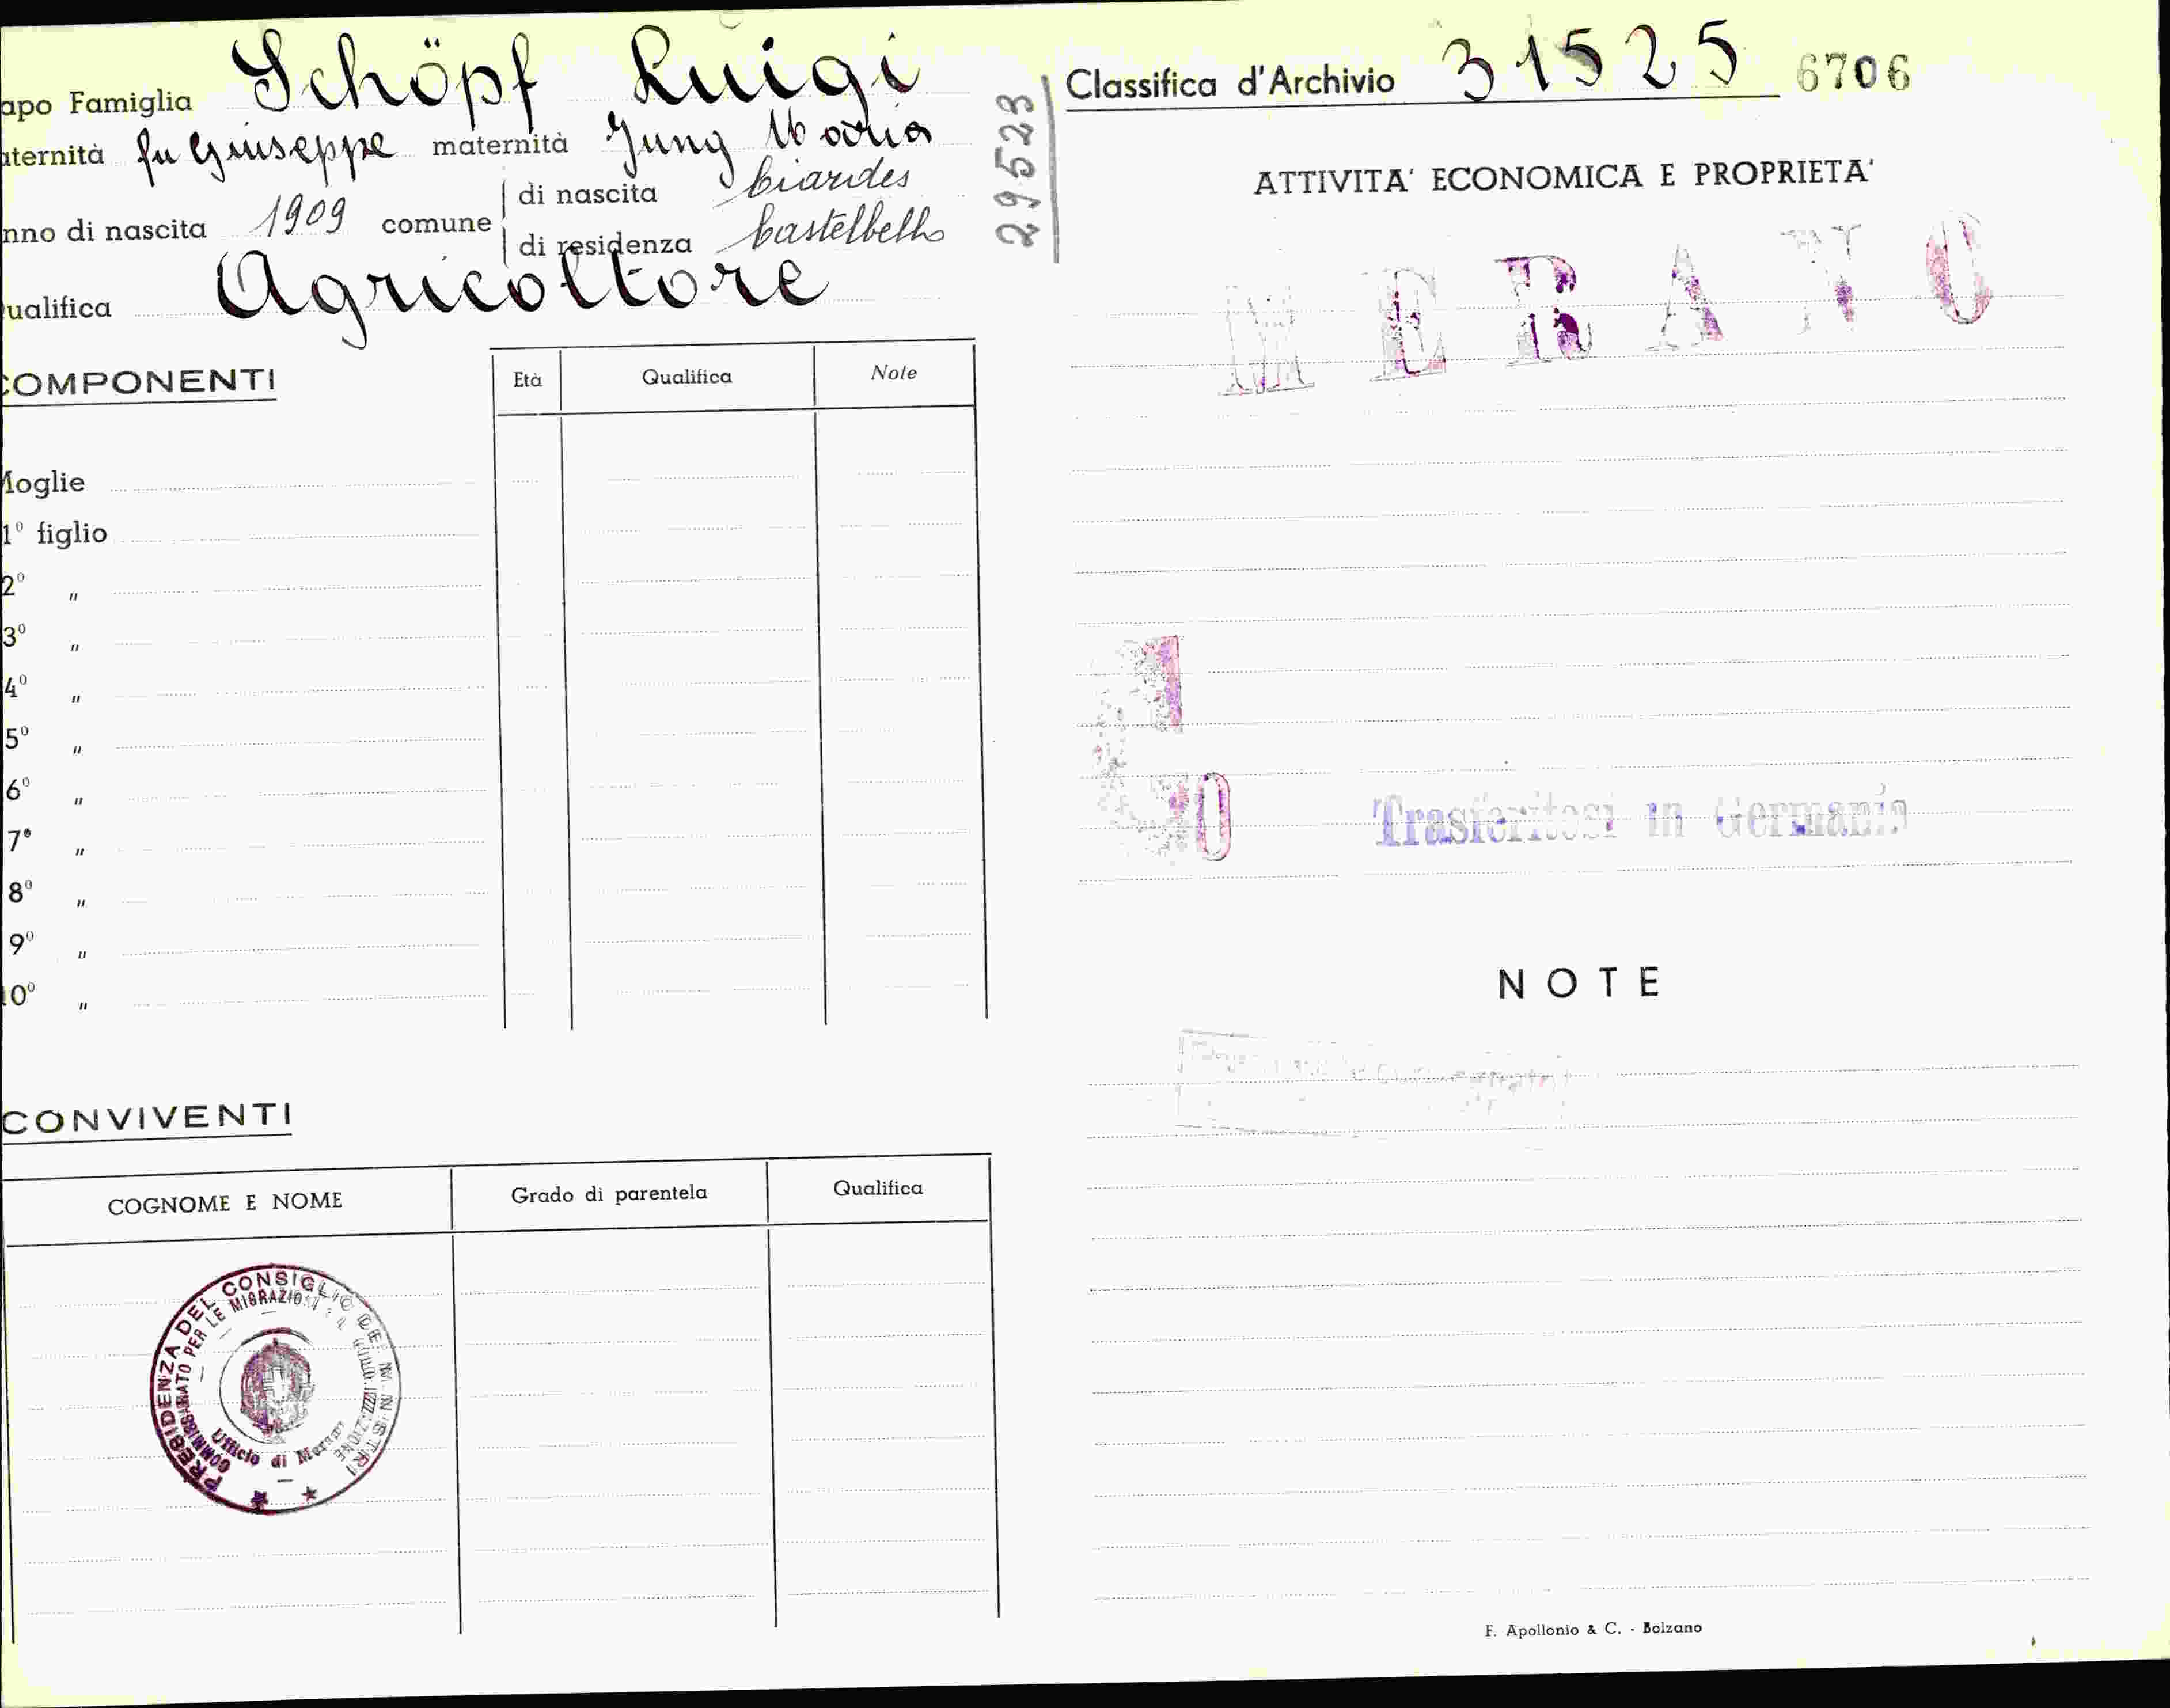 apo Famiglia Schöpf Luigi
aternità fu Giuseppe maternità Jung Maria
nno di nascita 1909 comune di nascita Ciardes
di residenza Castelbello
ualifica Agricoltore
COMPONENTI
Età Qualifica Note
Moglie
1º figlio
2º "
3º "
4º "
5º "
6º "
7º "
8º "
9º "
10º "
CONVIVENTI
COGNOME E NOME Grado di parentela Qualifica
PRESIDENZA DEL CONSIGLIO DEI MINISTRI
COMMISSARIATO PER LE MIGRAZIONI
Ufficio di Merano
29523
Classifica d'Archivio 31525 6706
ATTIVITA' ECONOMICA E PROPRIETA'
MERANO
Trasferitosi in Germania
NOTE
F. Apollonio & C. - Bolzano